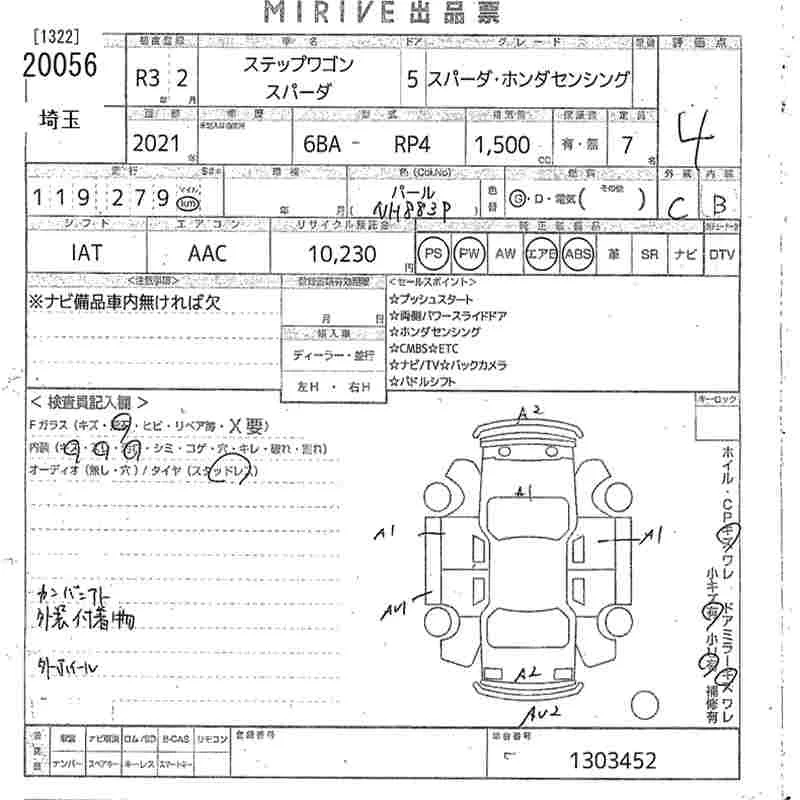 MIRIVE 出品票
[1322]
20056
埼玉
車名 ドア グレード 評価点
R3 2
年 月
ステップワゴン
スパーダ
5 スパーダ・ホンダセンシング
4
型式 排気量 定員
2021
年
6BA - RP4
1,500
CC
有・無
7
名
走行 車検 色(Col.No) 燃料 外装 内装
119279
マイル
km
年 月
パール
NH883P
色替
G・D・電気( その他 )
C B
シフト エアコン リサイクル預託金 純正装備品
IAT AAC 10,230
円
PS PW AW エアB ABS 革 SR ナビ DTV
<注意事項>
※ナビ備品車内無ければ欠
月 日
輸入車
ディーラー・並行
左H・右H
<セールスポイント>
☆プッシュスタート
☆両側パワースライドドア
☆ホンダセンシング
☆CMBS☆ETC
☆ナビ/TV☆バックカメラ
☆パドルシフト
キーロック
<検査員記入欄>
Fガラス(キズ・ ・ヒビ・リペア等・X要)
内装( ・シミ・コゲ・穴・キレ・破れ・割れ)
オーディオ(無し・穴)/タイヤ(スタッドレス)
カンバンアト
外装付着物
外ホイール
A2
A1
A1
A1
AU1
A2
AU2
ホイル・CPキズワレ ドアミラーキズワレ
小キズ有 小凹有 補修有
ナンバー スペアキー キーレス スマートキー
B-CAS リモコン
登録番号
車台番号
1303452